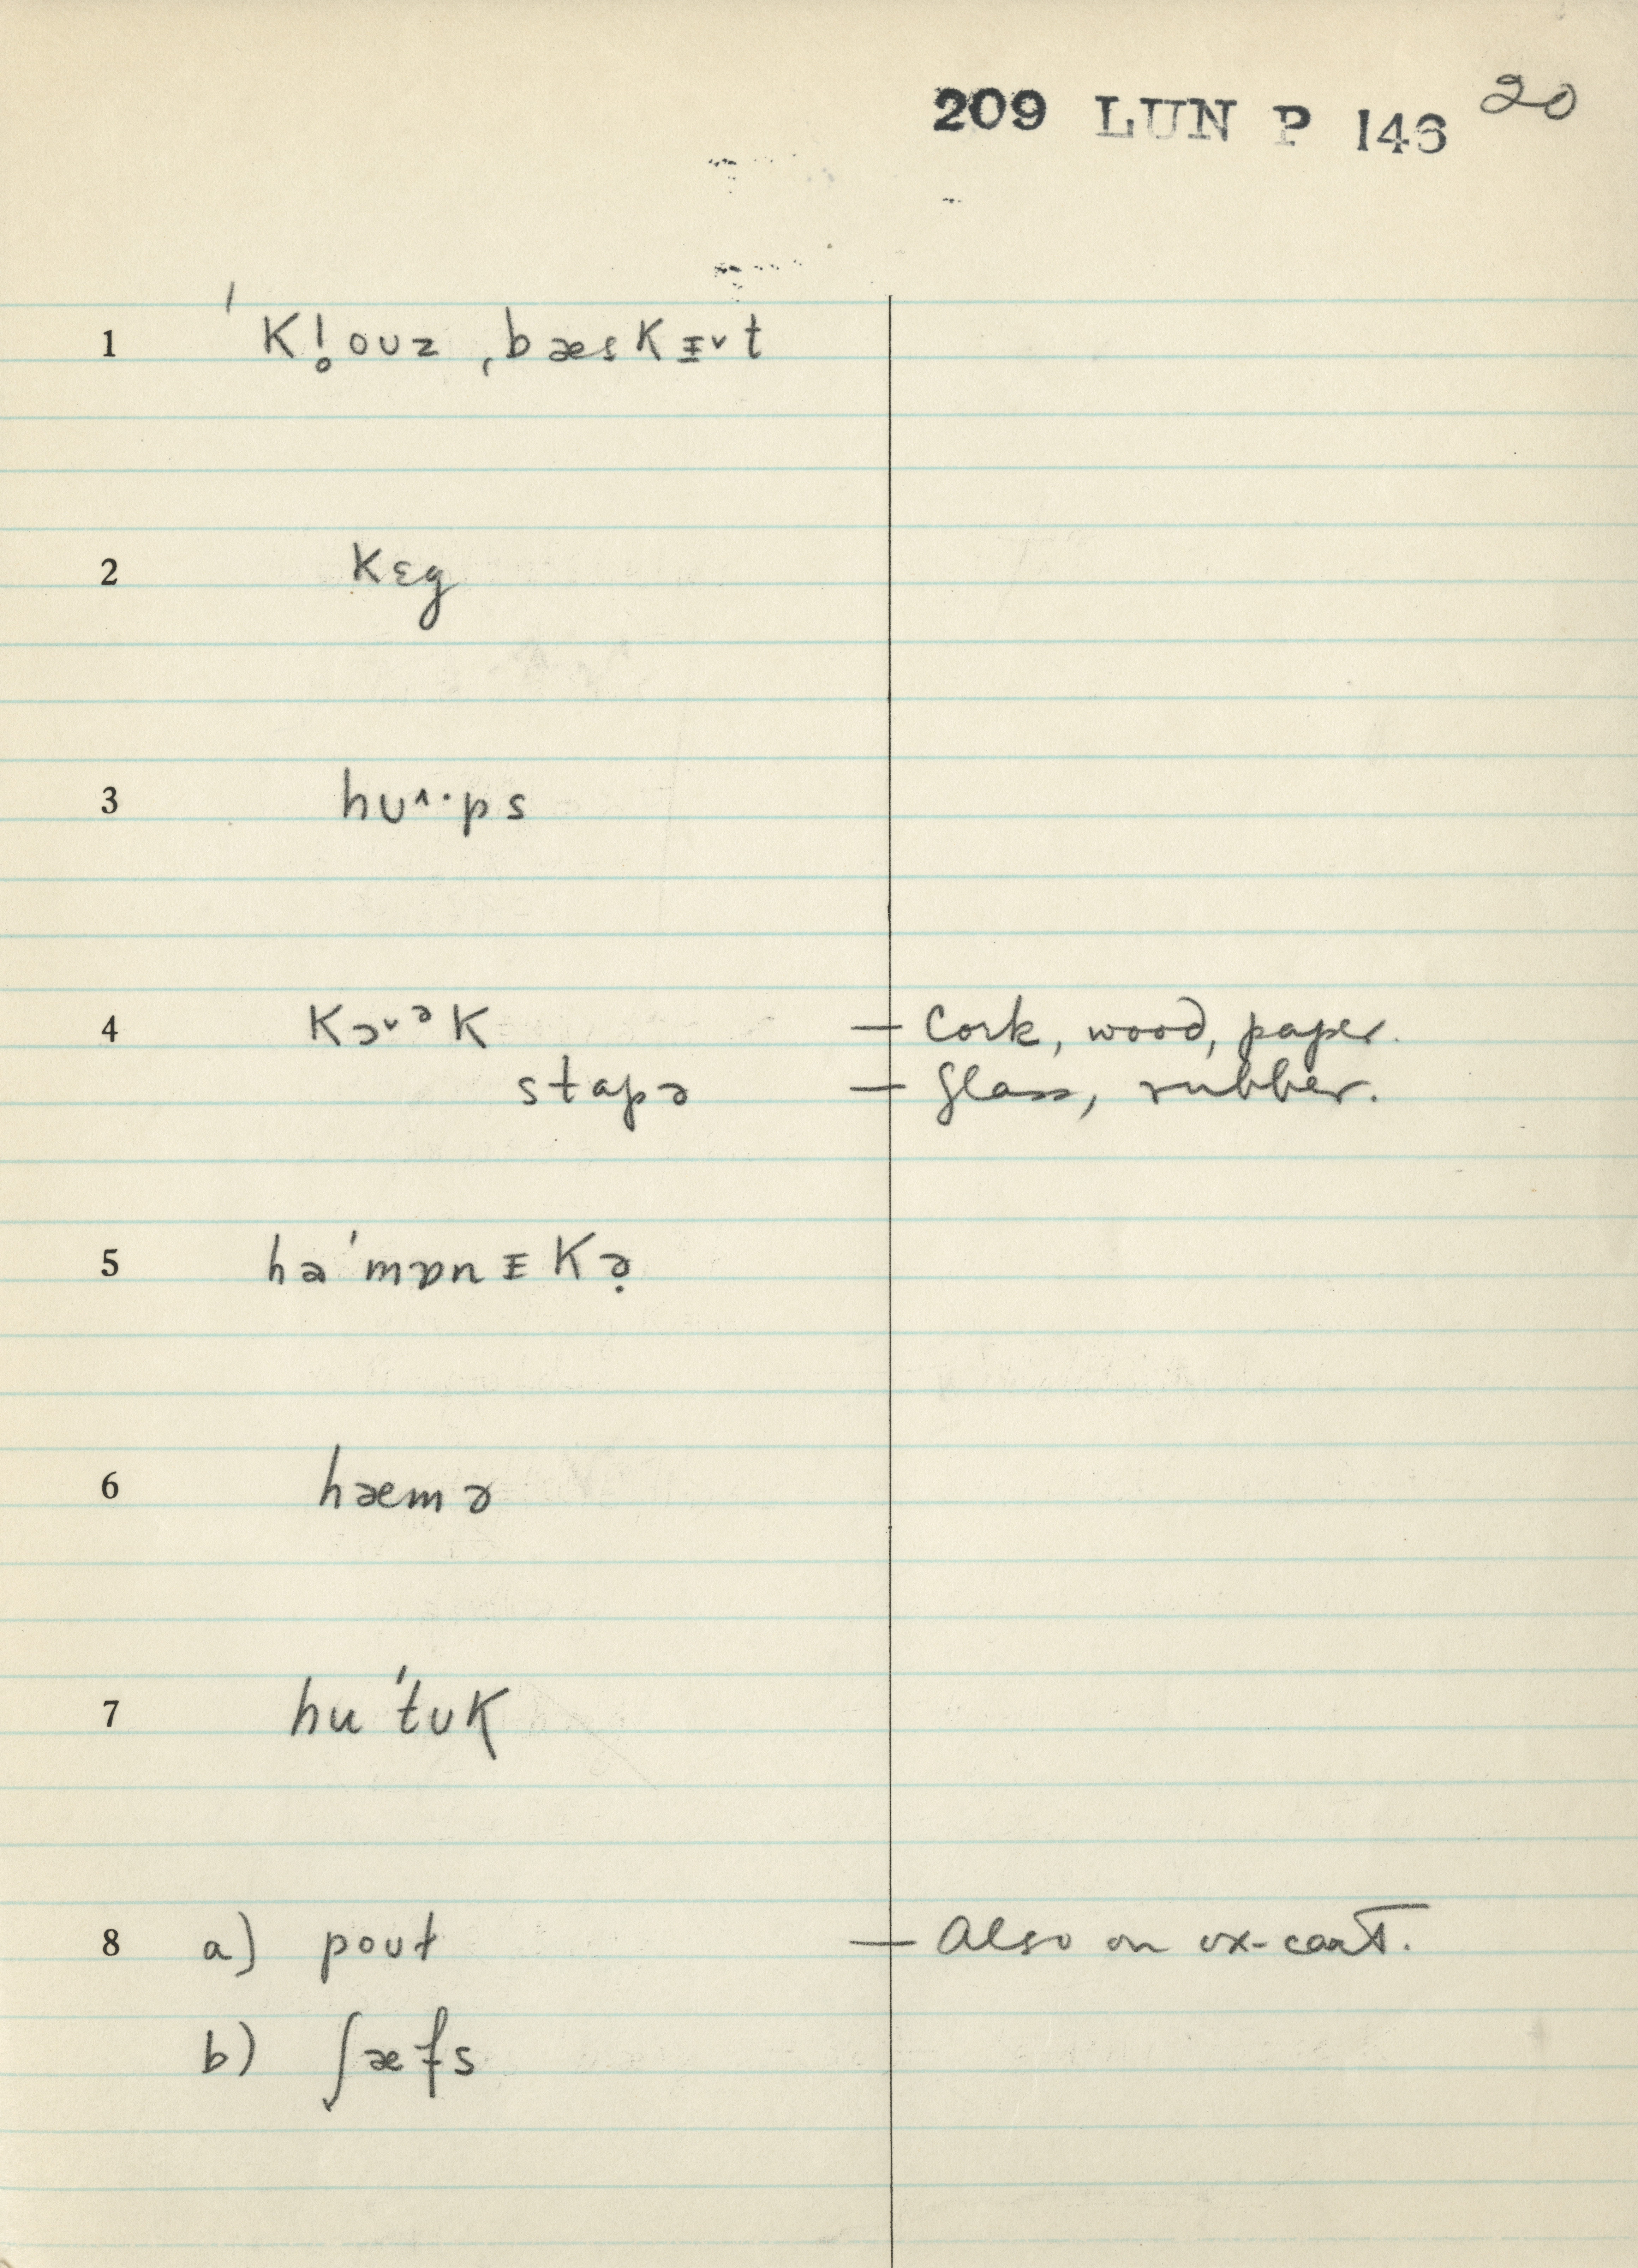 209 LUN P 146 20
1 ˈkl̥ouz ˌbæskᵻ˅t
2 kɛg
3 hʊ^·ps
4 kɔ˅ᵊk — Cork, wood, paper.
stapə — Glass, rubber.
5 həˈmɒnᵻkə̣
6 hæmə
7 huˈtʊk
8 a) poʊł — Also on ox-cart.
b) ʃæfs